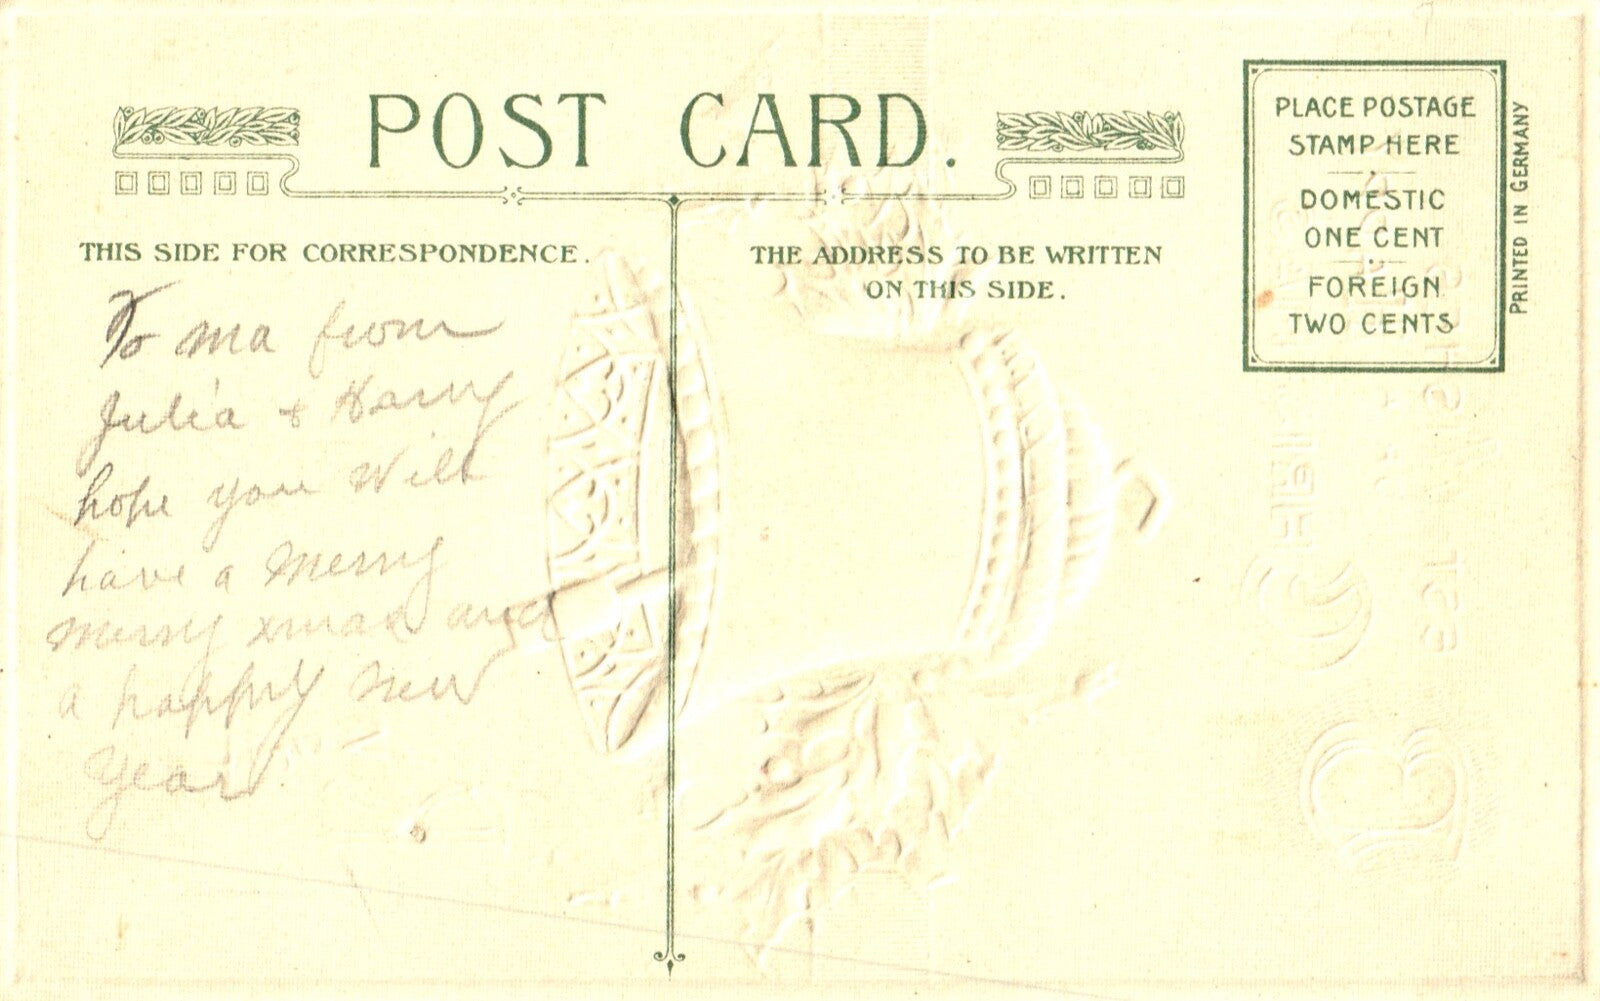 POST CARD.
THIS SIDE FOR CORRESPONDENCE.
To ma from
Julia + Harry
hope you Will
have a Merry
Merry xmas and
a happy New
Year
THE ADDRESS TO BE WRITTEN
ON THIS SIDE.
PLACE POSTAGE
STAMP HERE
DOMESTIC
ONE CENT
FOREIGN
TWO CENTS
PRINTED IN GERMANY